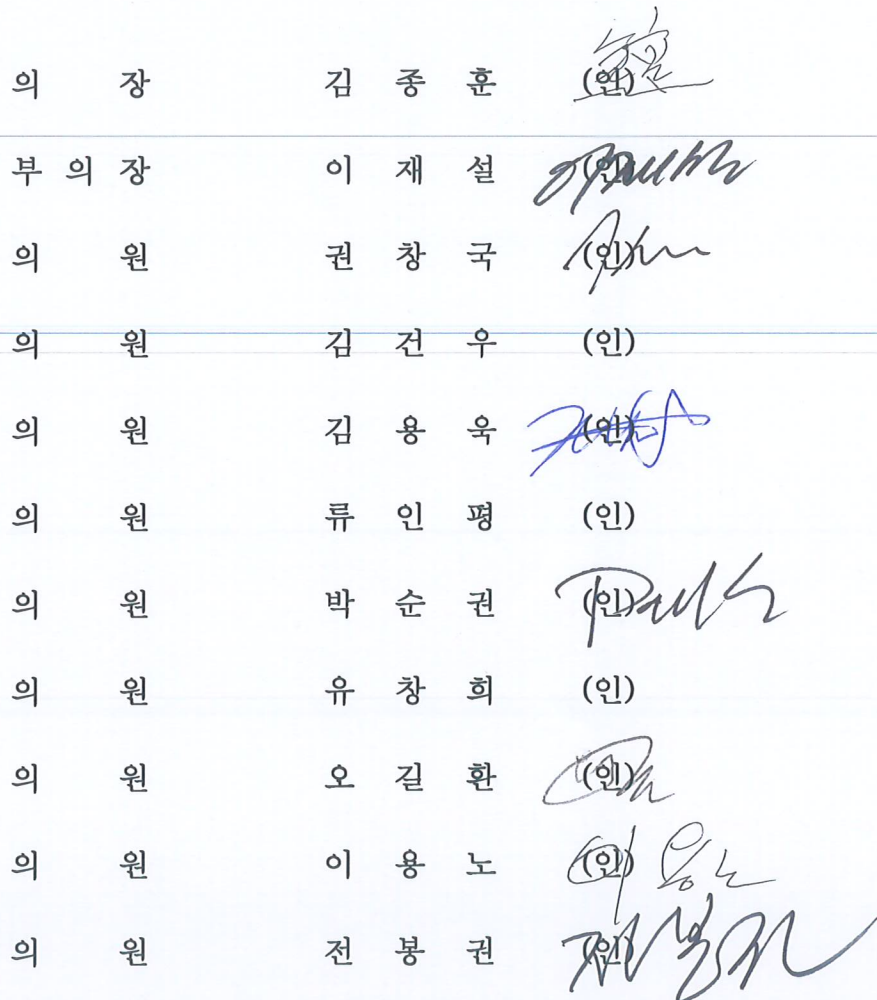 의 장 김 종 훈 (인)
부 의 장 이 재 설 (인)
의 원 권 창 국 (인)
의 원 김 건 우 (인)
의 원 김 용 욱 (인)
의 원 류 인 평 (인)
의 원 박 순 권 (인)
의 원 유 창 희 (인)
의 원 오 길 환 (인)
의 원 이 용 노 (인) 이용노
의 원 전 봉 권 (인)